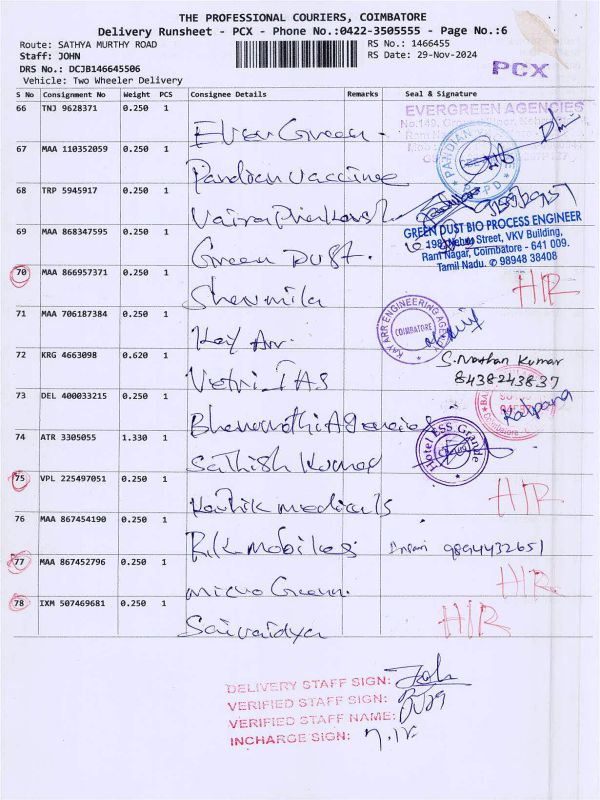 THE PROFESSIONAL COURIERS, COIMBATORE
Delivery Runsheet - PCX - Phone No.:0422-3505555 - Page No.:6
Route: SATHYA MURTHY ROAD RS No.: 1466455
Staff: JOHN RS Date: 29-Nov-2024
DRS No.: DCJB146645506
Vehicle: Two Wheeler Delivery
PCX
S No Consignment No Weight PCS Consignee Details Remarks Seal & Signature
66 TNJ 9628371 0.250 1 Ever Green
EVERGREEN AGENCIES
67 MAA 110352059 0.250 1 Pandian Vaccine
PANDIAN
68 TRP 5945917 0.250 1 Vaira Prakash
69 MAA 868347595 0.250 1 Green Dust.
GREEN DUST BIO PROCESS ENGINEER
198, Nehru Street, VKV Building,
Ram Nagar, Coimbatore - 641 009.
Tamil Nadu. ✆ 98948 38408
70 MAA 866957371 0.250 1 Sharmila H/R
71 MAA 706187384 0.250 1 Kay Arr.
KAY ARR ENGINEERING AGENCY
COIMBATORE
72 KRG 4663098 0.620 1 Vetri IAS S. Nathan Kumar
8438243837
73 DEL 400033215 0.250 1 Bhanumathi Agencies Kalpana
74 ATR 3305055 1.330 1 Sathish Kumar
Hotel ESS Grande
75 VPL 225497051 0.250 1 Karthik medicals H/R
76 MAA 867454190 0.250 1 R.K mobiles 9894432651
77 MAA 867452796 0.250 1 micro Green. H/R
78 IXM 507469681 0.250 1 Saivaidya H/R
DELIVERY STAFF SIGN: John
VERIFIED STAFF SIGN:
VERIFIED STAFF NAME:
INCHARGE SIGN: